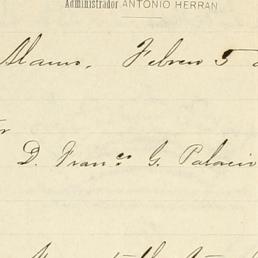 Administrador ANTONIO HERRAN
Alamo, Febrero 5
D. Franco G. Palacio